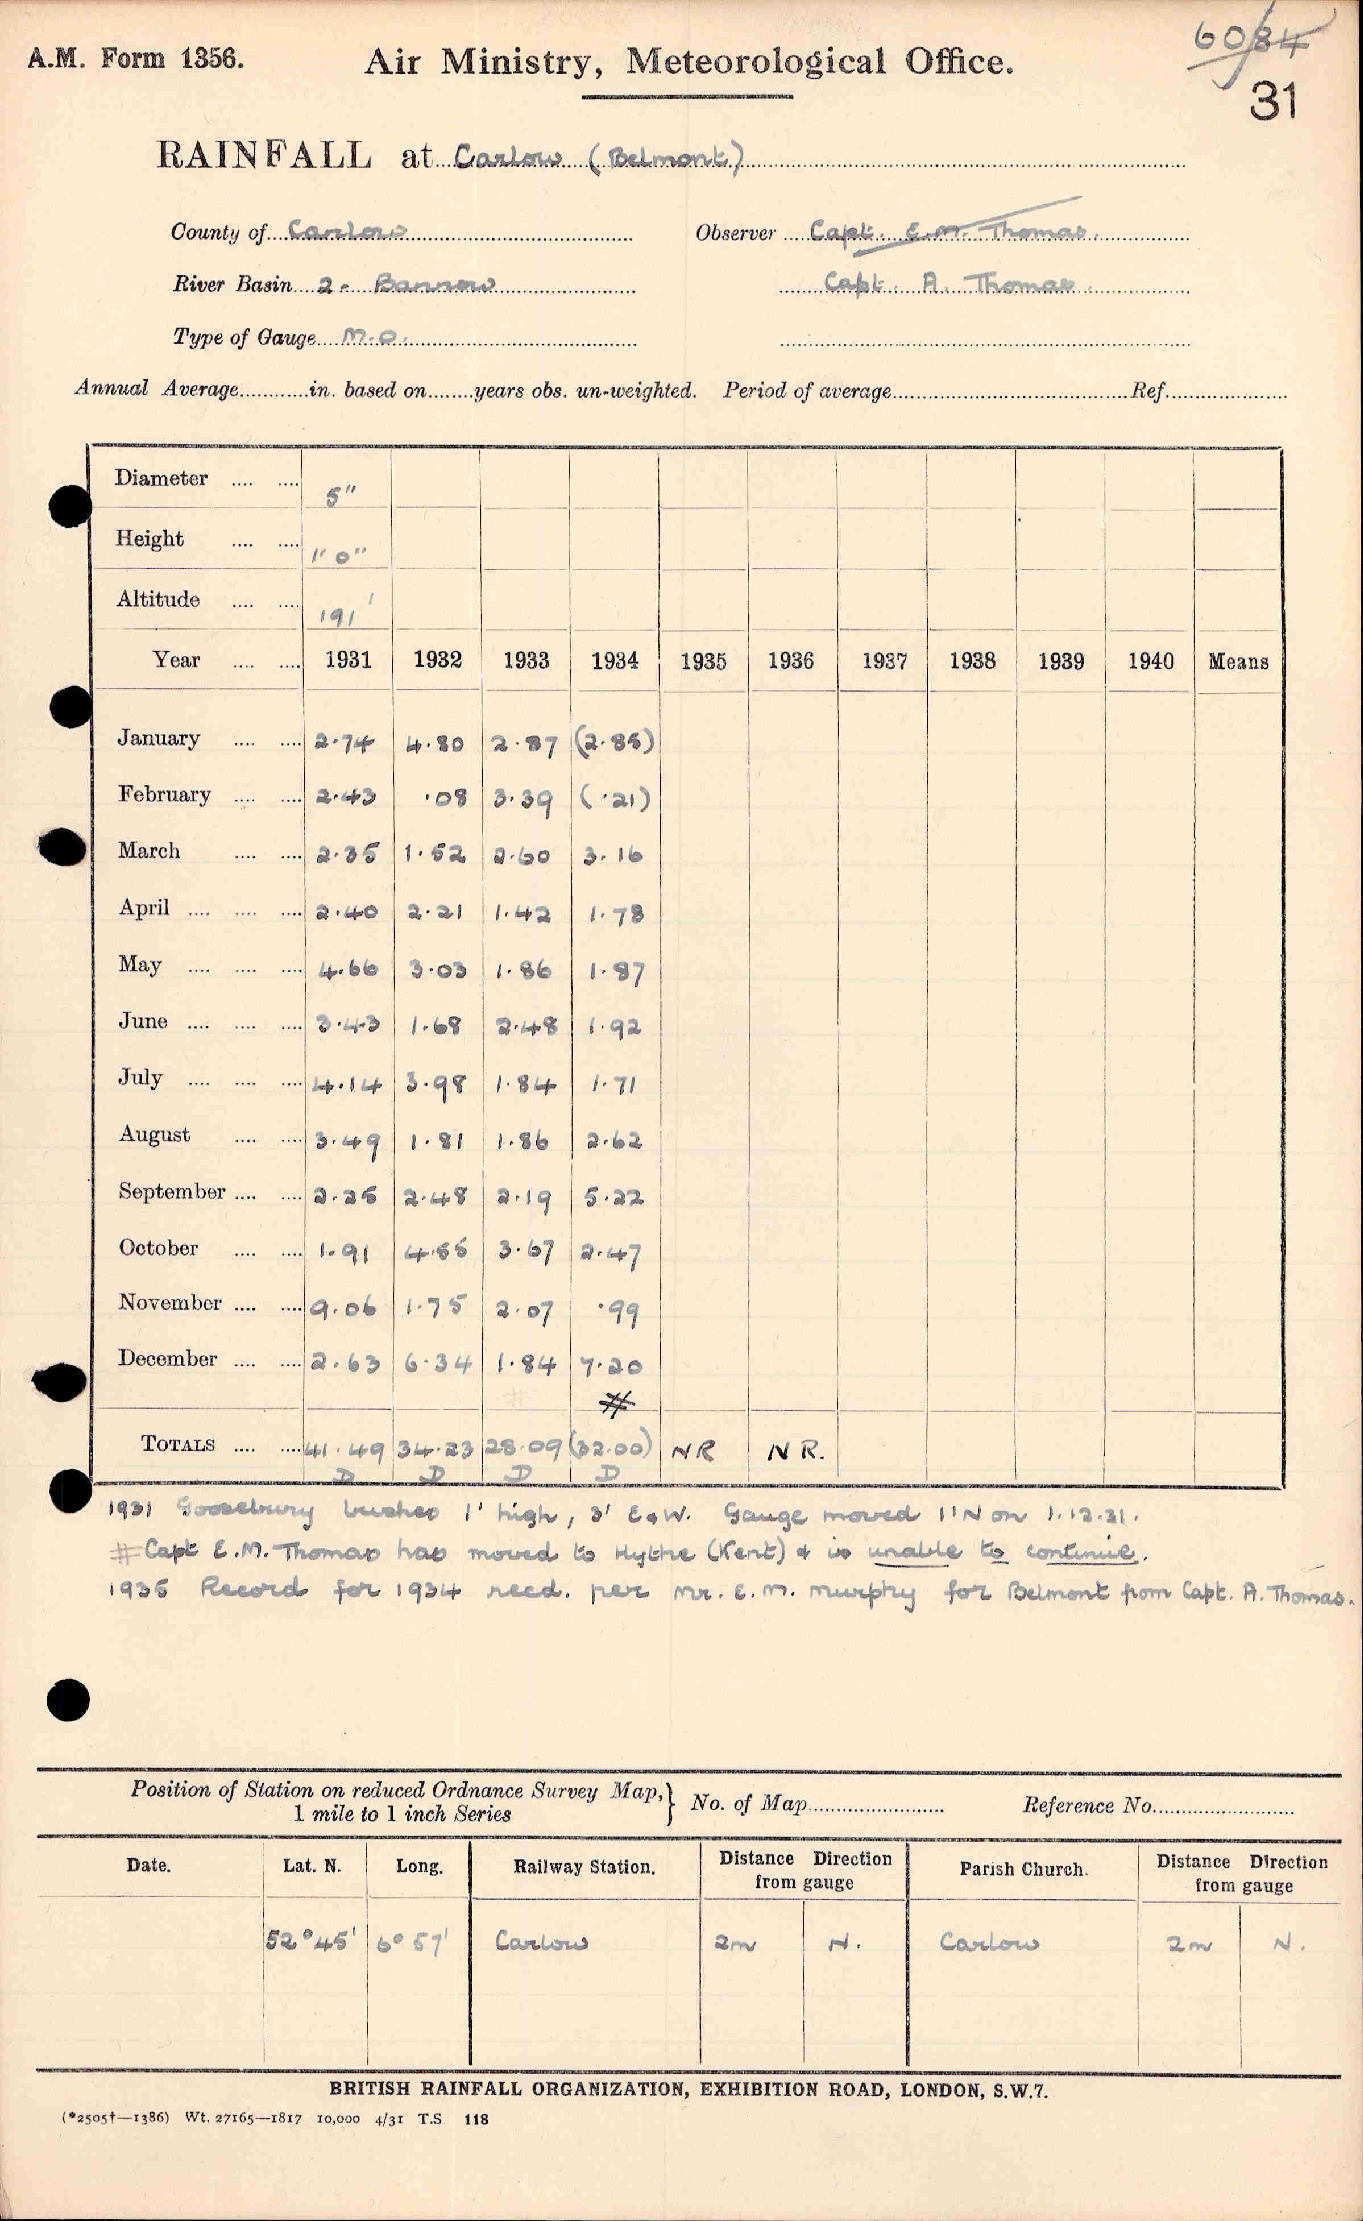 6084
A.M. Form 1356.
Air Ministry, Meteorological Office.
31
RAINFALL at Carlow (Belmont)
County of Carlow Observer Capt. E.M. Thomas.
River Basin 2. Barrow Capt. A. Thomas.
Type of Gauge M.O.
Annual Average in. based on years obs. un-weighted. Period of average Ref.
Diameter 5"
Height 1' 0"
Altitude 191'
Year 1931 1932 1933 1934 1935 1936 1937 1938 1939 1940 Means
January 2.74 4.80 2.87 (2.85)
February 2.43 .08 3.39 (.21)
March 2.35 1.52 2.60 3.16
April 2.40 2.21 1.42 1.78
May 4.66 3.03 1.86 1.87
June 3.43 1.68 2.48 1.92
July 4.14 3.98 1.84 1.71
August 3.49 1.81 1.86 2.62
September 2.25 2.48 2.19 5.22
October 1.91 4.55 3.67 2.47
November 9.06 1.75 2.07 .99
December 2.63 6.34 1.84 7.20
#
TOTALS 41.49 34.23 28.09 (32.00) NR NR.
D D D D
1931 Goosebury bushes 1' high, 3' E & W. Gauge moved 11' N on 1.12.31.
# Capt E.M. Thomas has moved to Hythe (Kent) & is unable to continue.
1935 Record for 1934 recd. per Mr. E. M. Murphy for Belmont from Capt. A. Thomas.
Position of Station on reduced Ordnance Survey Map,} No. of Map Reference No.
1 mile to 1 inch Series
Date. Lat. N. Long. Railway Station. Distance Direction from gauge Parish Church. Distance Direction from gauge
52° 45' 6° 57' Carlow 2m N. Carlow 2m N.
BRITISH RAINFALL ORGANIZATION, EXHIBITION ROAD, LONDON, S.W.7.
(*2505†—1386) Wt. 27165—1817 10,000 4/31 T.S 118